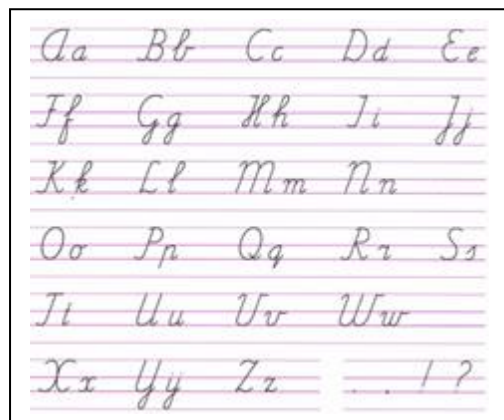 Aa Bb Cc Dd Ee
Ff Gg Hh Ii Jj
Kk Ll Mm Nn
Oo Pp Qq Rr Ss
Tt Uu Vv Ww
Xx Yy Zz . . ! ?